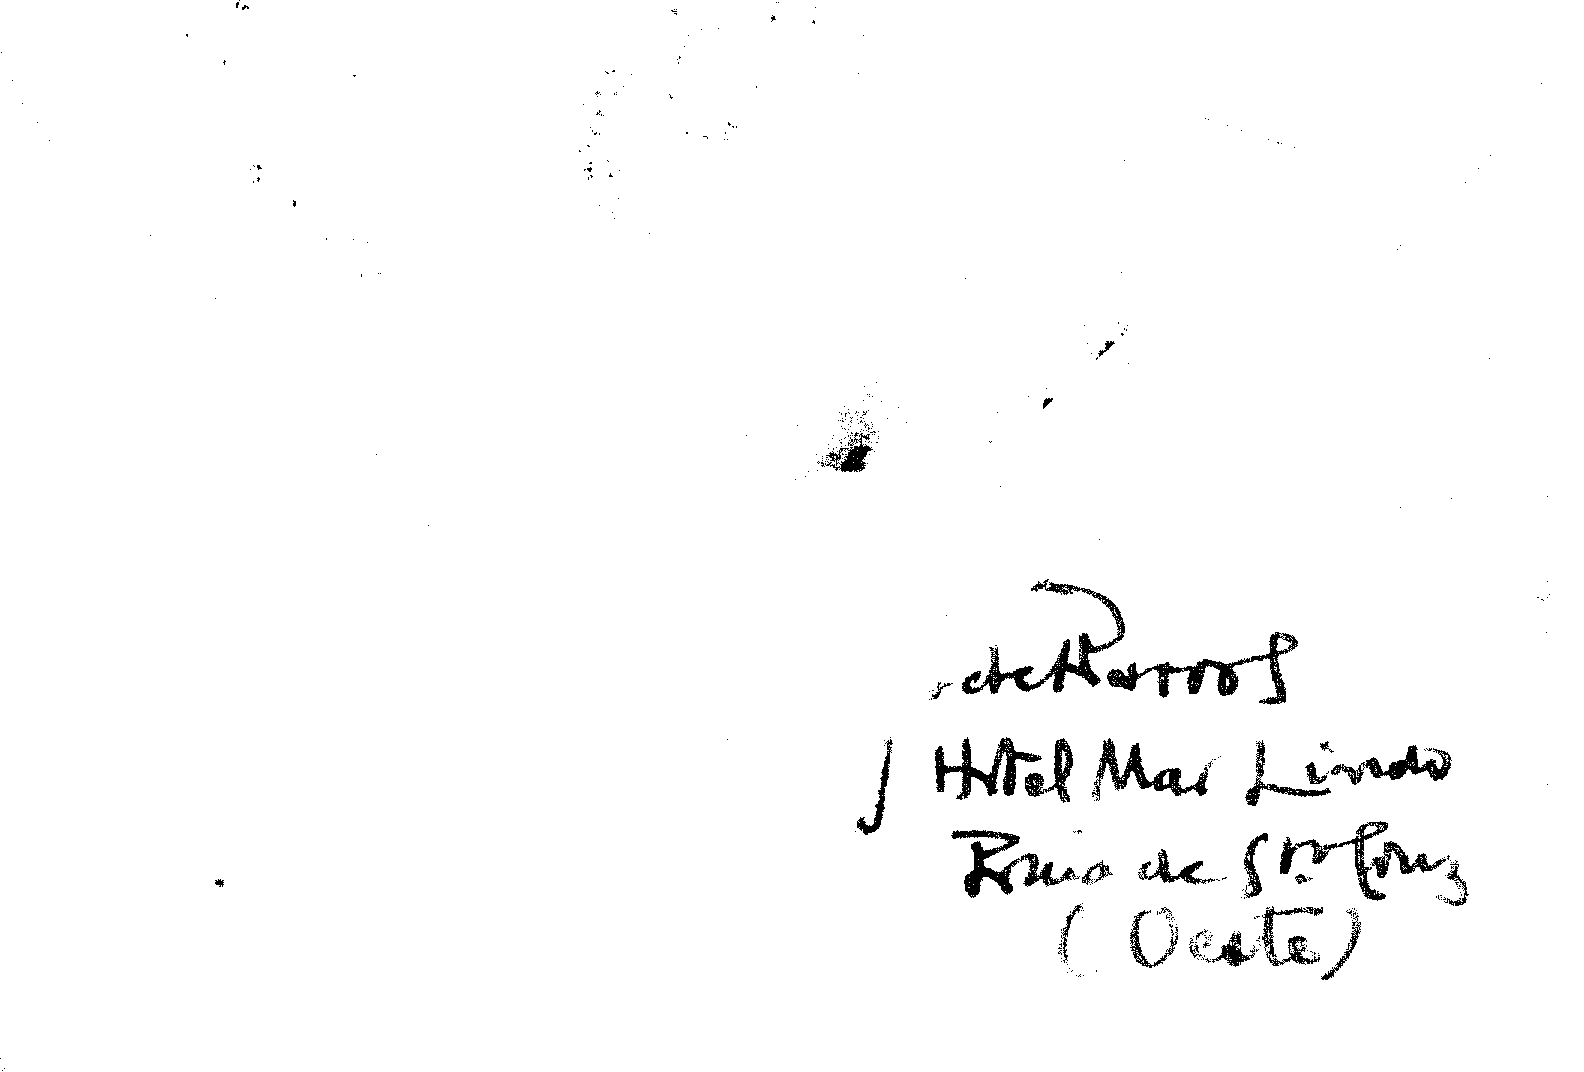 de Barros
Hotel Mar Lindo
Praia de Sta. Cruz
(Oeste)